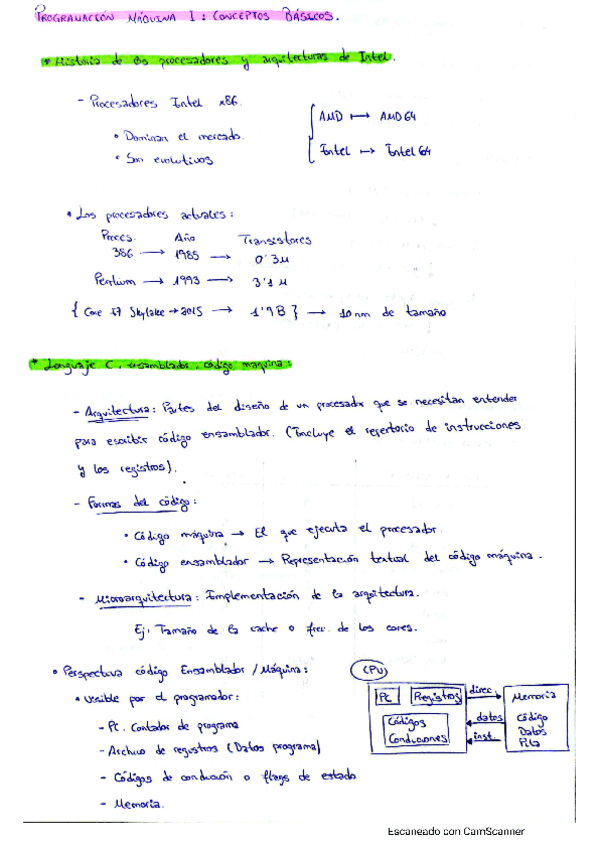 PROGRAMACIÓN MÁQUINA I: CONCEPTOS BÁSICOS.
* Historia de los procesadores y arquitecturas de Intel.
- Procesadores Intel x86.
• Dominan el mercado.
• Son evolutivos
AMD ↦ AMD64
Intel → Intel 64
• Los procesadores actuales:
Proces. Año Transistores
386 → 1985 → 0'3M
Pentium → 1993 → 3'1M
{ Core I7 Skylake → 2015 → 1'9B } → 10nm de tamaño
* Lenguaje C, ensamblador, código maquina:
- Arquitectura: Partes del diseño de un procesador que se necesitan entender
para escribir código ensamblador. (Incluye el repertorio de instrucciones
y los registros).
- Formas del código:
• Código máquina → El que ejecuta el procesador.
• Código ensamblador → Representación textual del código máquina.
- Microarquitectura: Implementación de la arquitectura.
Ej. Tamaño de la cache o frec. de los cores.
• Perspectiva código Ensamblador / Máquina:
• Visible por el programador:
- Pc. Contador de programa
- Archivo de registros (Datos programa)
- Códigos de condición o flags de estado
- Memoria.
CPU
PC Registros
Códigos
Condiciones
direc.
datos
inst.
Memoria
Código
Datos
Pila
Escaneado con CamScanner